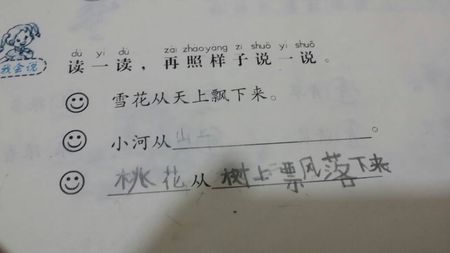 dú yi dú zài zhào yàng zi shuō yi shuō
我会说 读一读，再照样子说一说。
雪花从天上飘下来。
小河从山上。
桃花从树上票风落下来